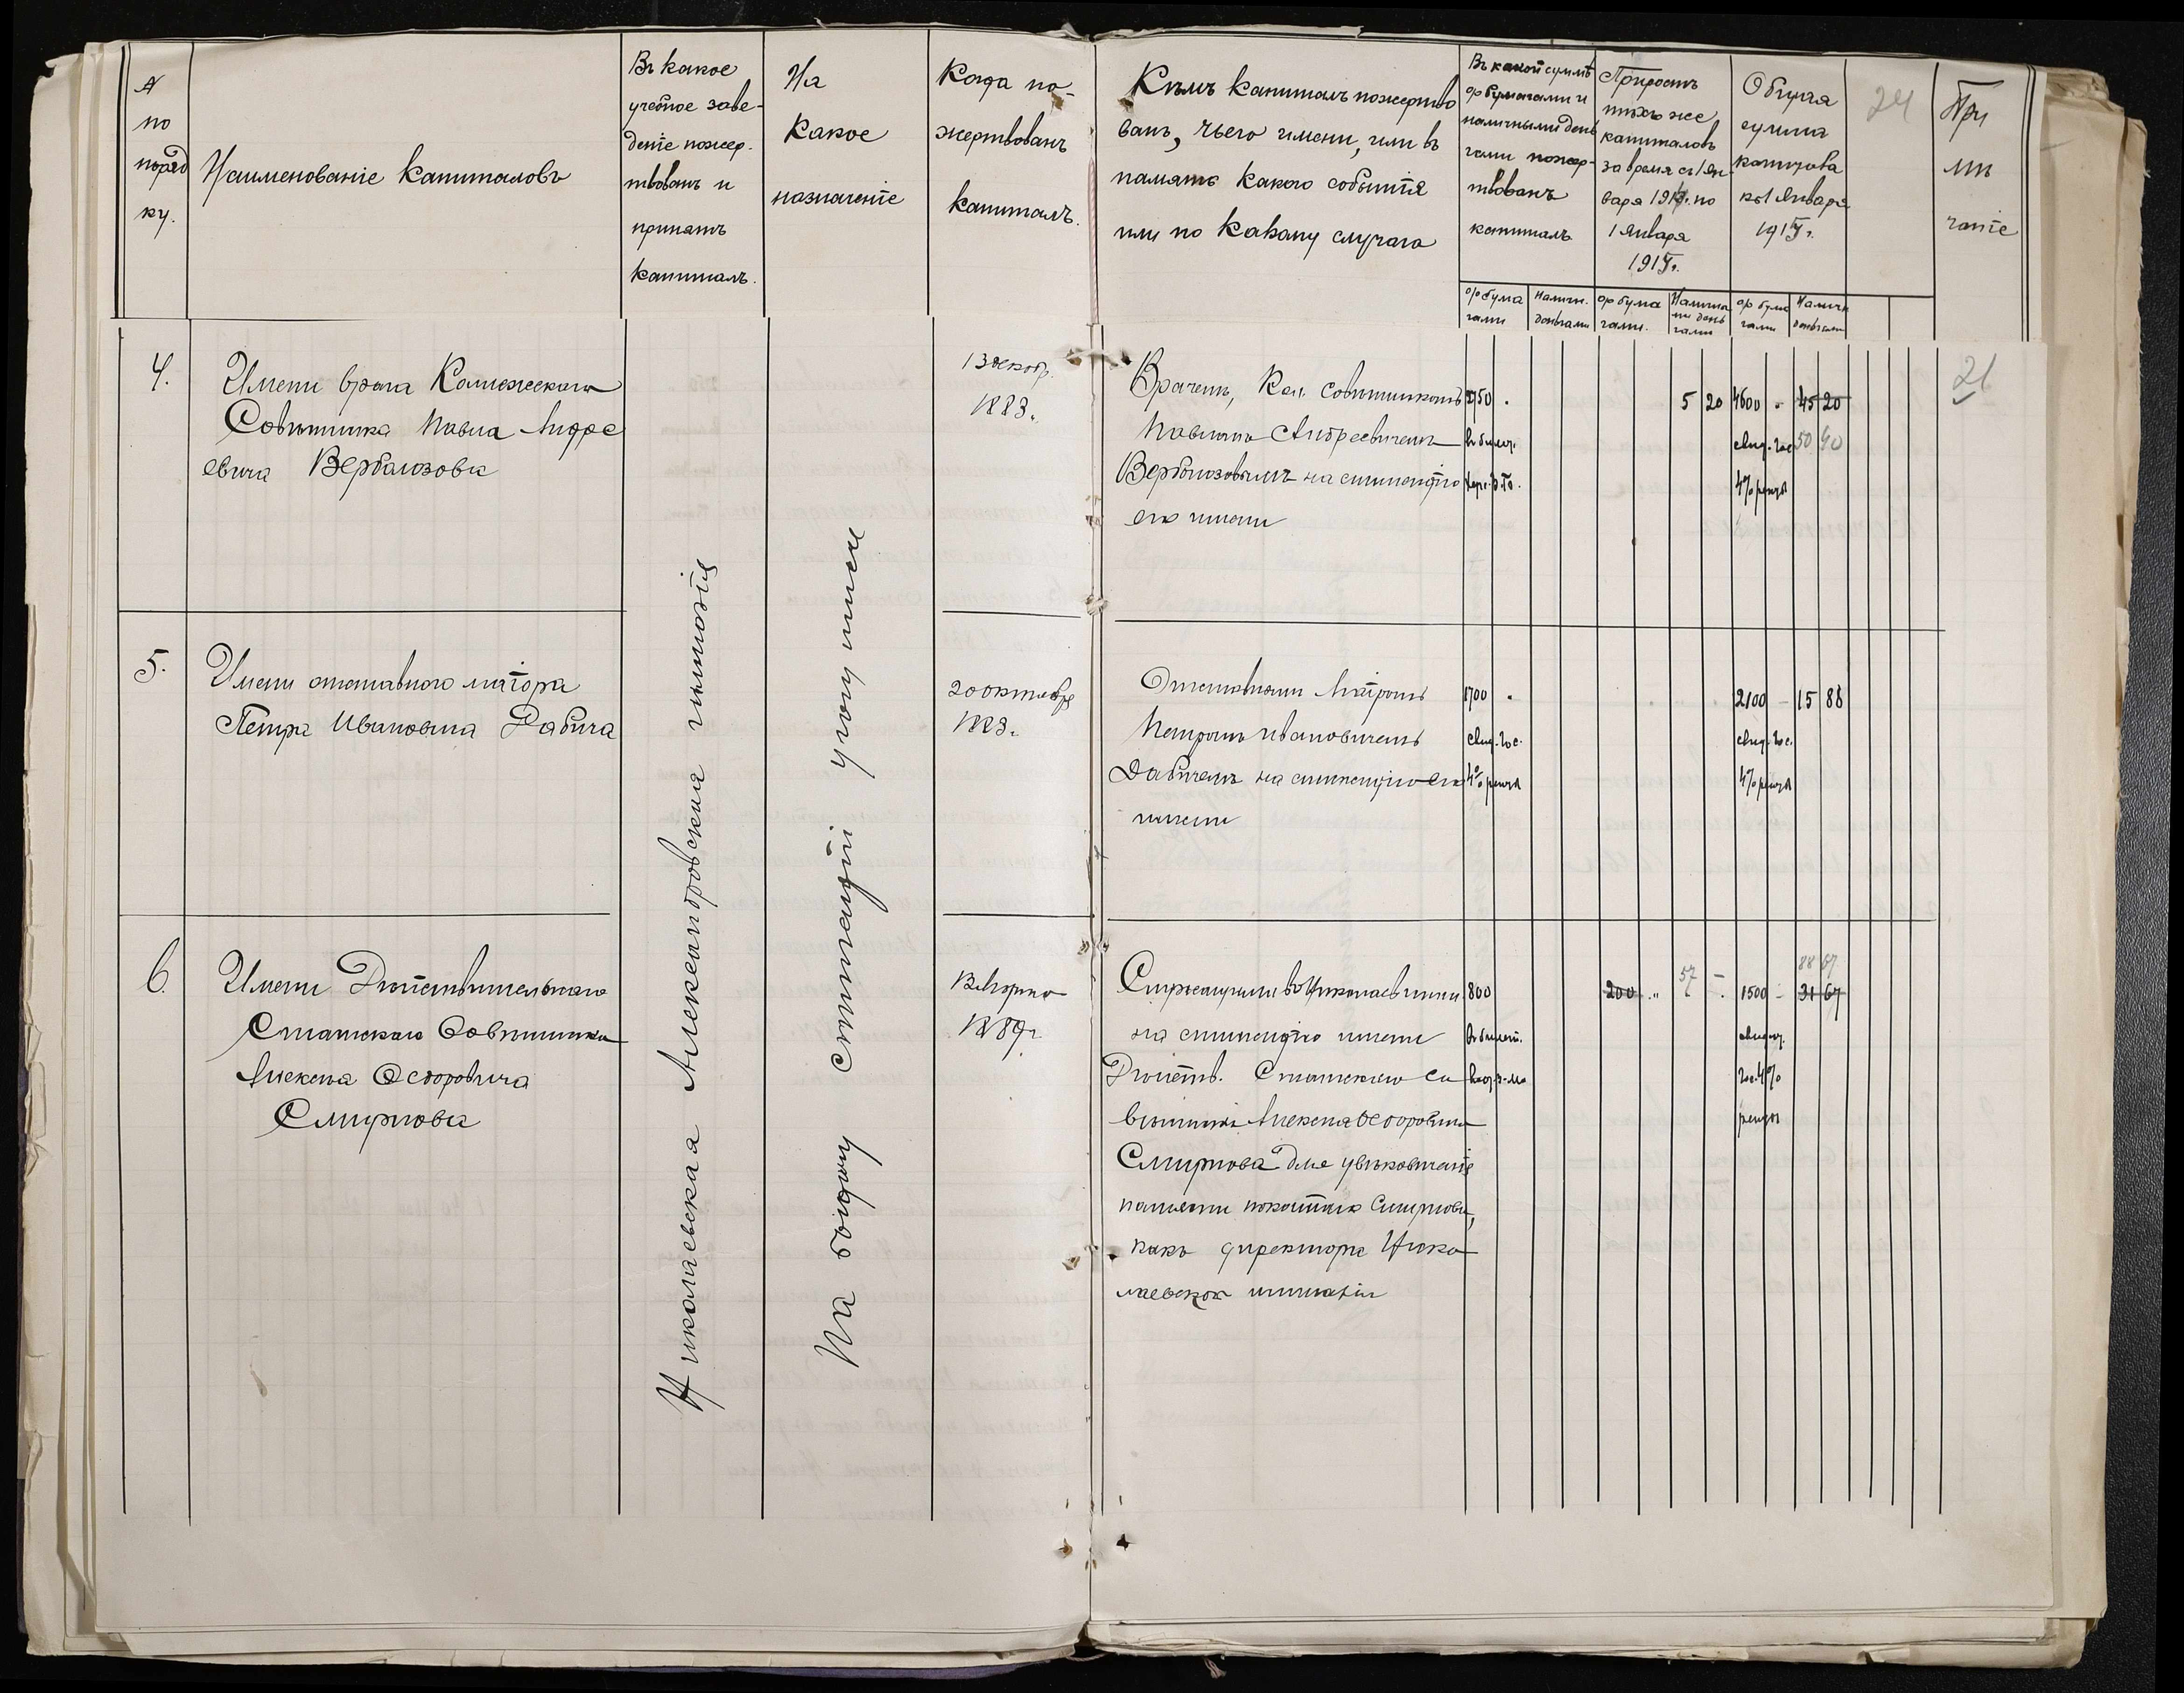 №
по
поряд
ку.
Наименованіе капиталовъ
Въ какое
учебное заве-
деніе пожер-
твованъ и
принятъ
капиталъ.
На
какое
назначеніе
Когда по-
жертвованъ
капиталъ.
Кѣмъ капиталъ пожертво
ванъ, чьего имени, или въ
память какого событія
или по какому случаю
Въ какой суммѣ
% бумагами и
наличными день
гами пожер-
твованъ
капиталъ
% бума
гами
Наличн.
деньгами
Приростъ
тѣхъ же
капиталовъ
за время съ 1 Ян
варя 191 г. по
1 Января
1917 г.
% бума
гами.
Наличны
ми день
гами
Общая
сумма
капитала
къ 1 Января
1917 г.
% бума
гами
Наличн
деньгами
24
При
мѣ
чаніе
4.
Имени врача Коллежскаго
Совѣтника Павла Андре
евича Вербловова
1 декабр.
1883 г.
Врачемъ, Кол. Совѣтникомъ
Павломъ Андреевичемъ
на стипендію
его имени
5 20
4600 - 45 20
свид. гос. 50 40
4% рента
21
5.
Имени отставного маіора
Петра Ивановича Дабича
20 октября
1883 г.
Отставнымъ Маіромъ
Петромъ Ивановичемъ
Дабичемъ на стипендію его
имени
1700
свид. гос.
4% рента
2100 - 15 88
свид. гос.
4% рента
6.
Имени Дѣйствительнаго
Статскаго Совѣтника
Алексѣя Ѳедоровича
Смирнова
1889 г.
Служащими въ Николаевской
на стипендію имени
Дѣйств. Статскаго Со
вѣтника Алексѣя Ѳедоровича
Смирнова для увѣковѣченія
памяти покойнаго Смирнова,
какъ директора Нико
лаевской гимназіи
800
въ билет.
200 " 57 -
88 67
1500 - 31 67
свидѣт.
гос. 4%
ренты
Николаевская Александровская гимназія
На бѣдному стипендіи ученику